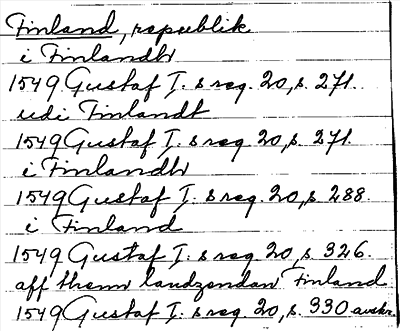 Finland, republik
i Finlandh
1549 Gustaf I. s reg. 20, s. 271.
udi Finlandt
1549 Gustaf I. s reg. 20, s. 271.
i Finlandh
1549 Gustaf I. s reg. 20, s. 288.
i Finland
1549 Gustaf I. s reg. 20, s. 326.
aff them landzendan Finland
1549 Gustaf I. s reg. 20, s. 330 avskr.